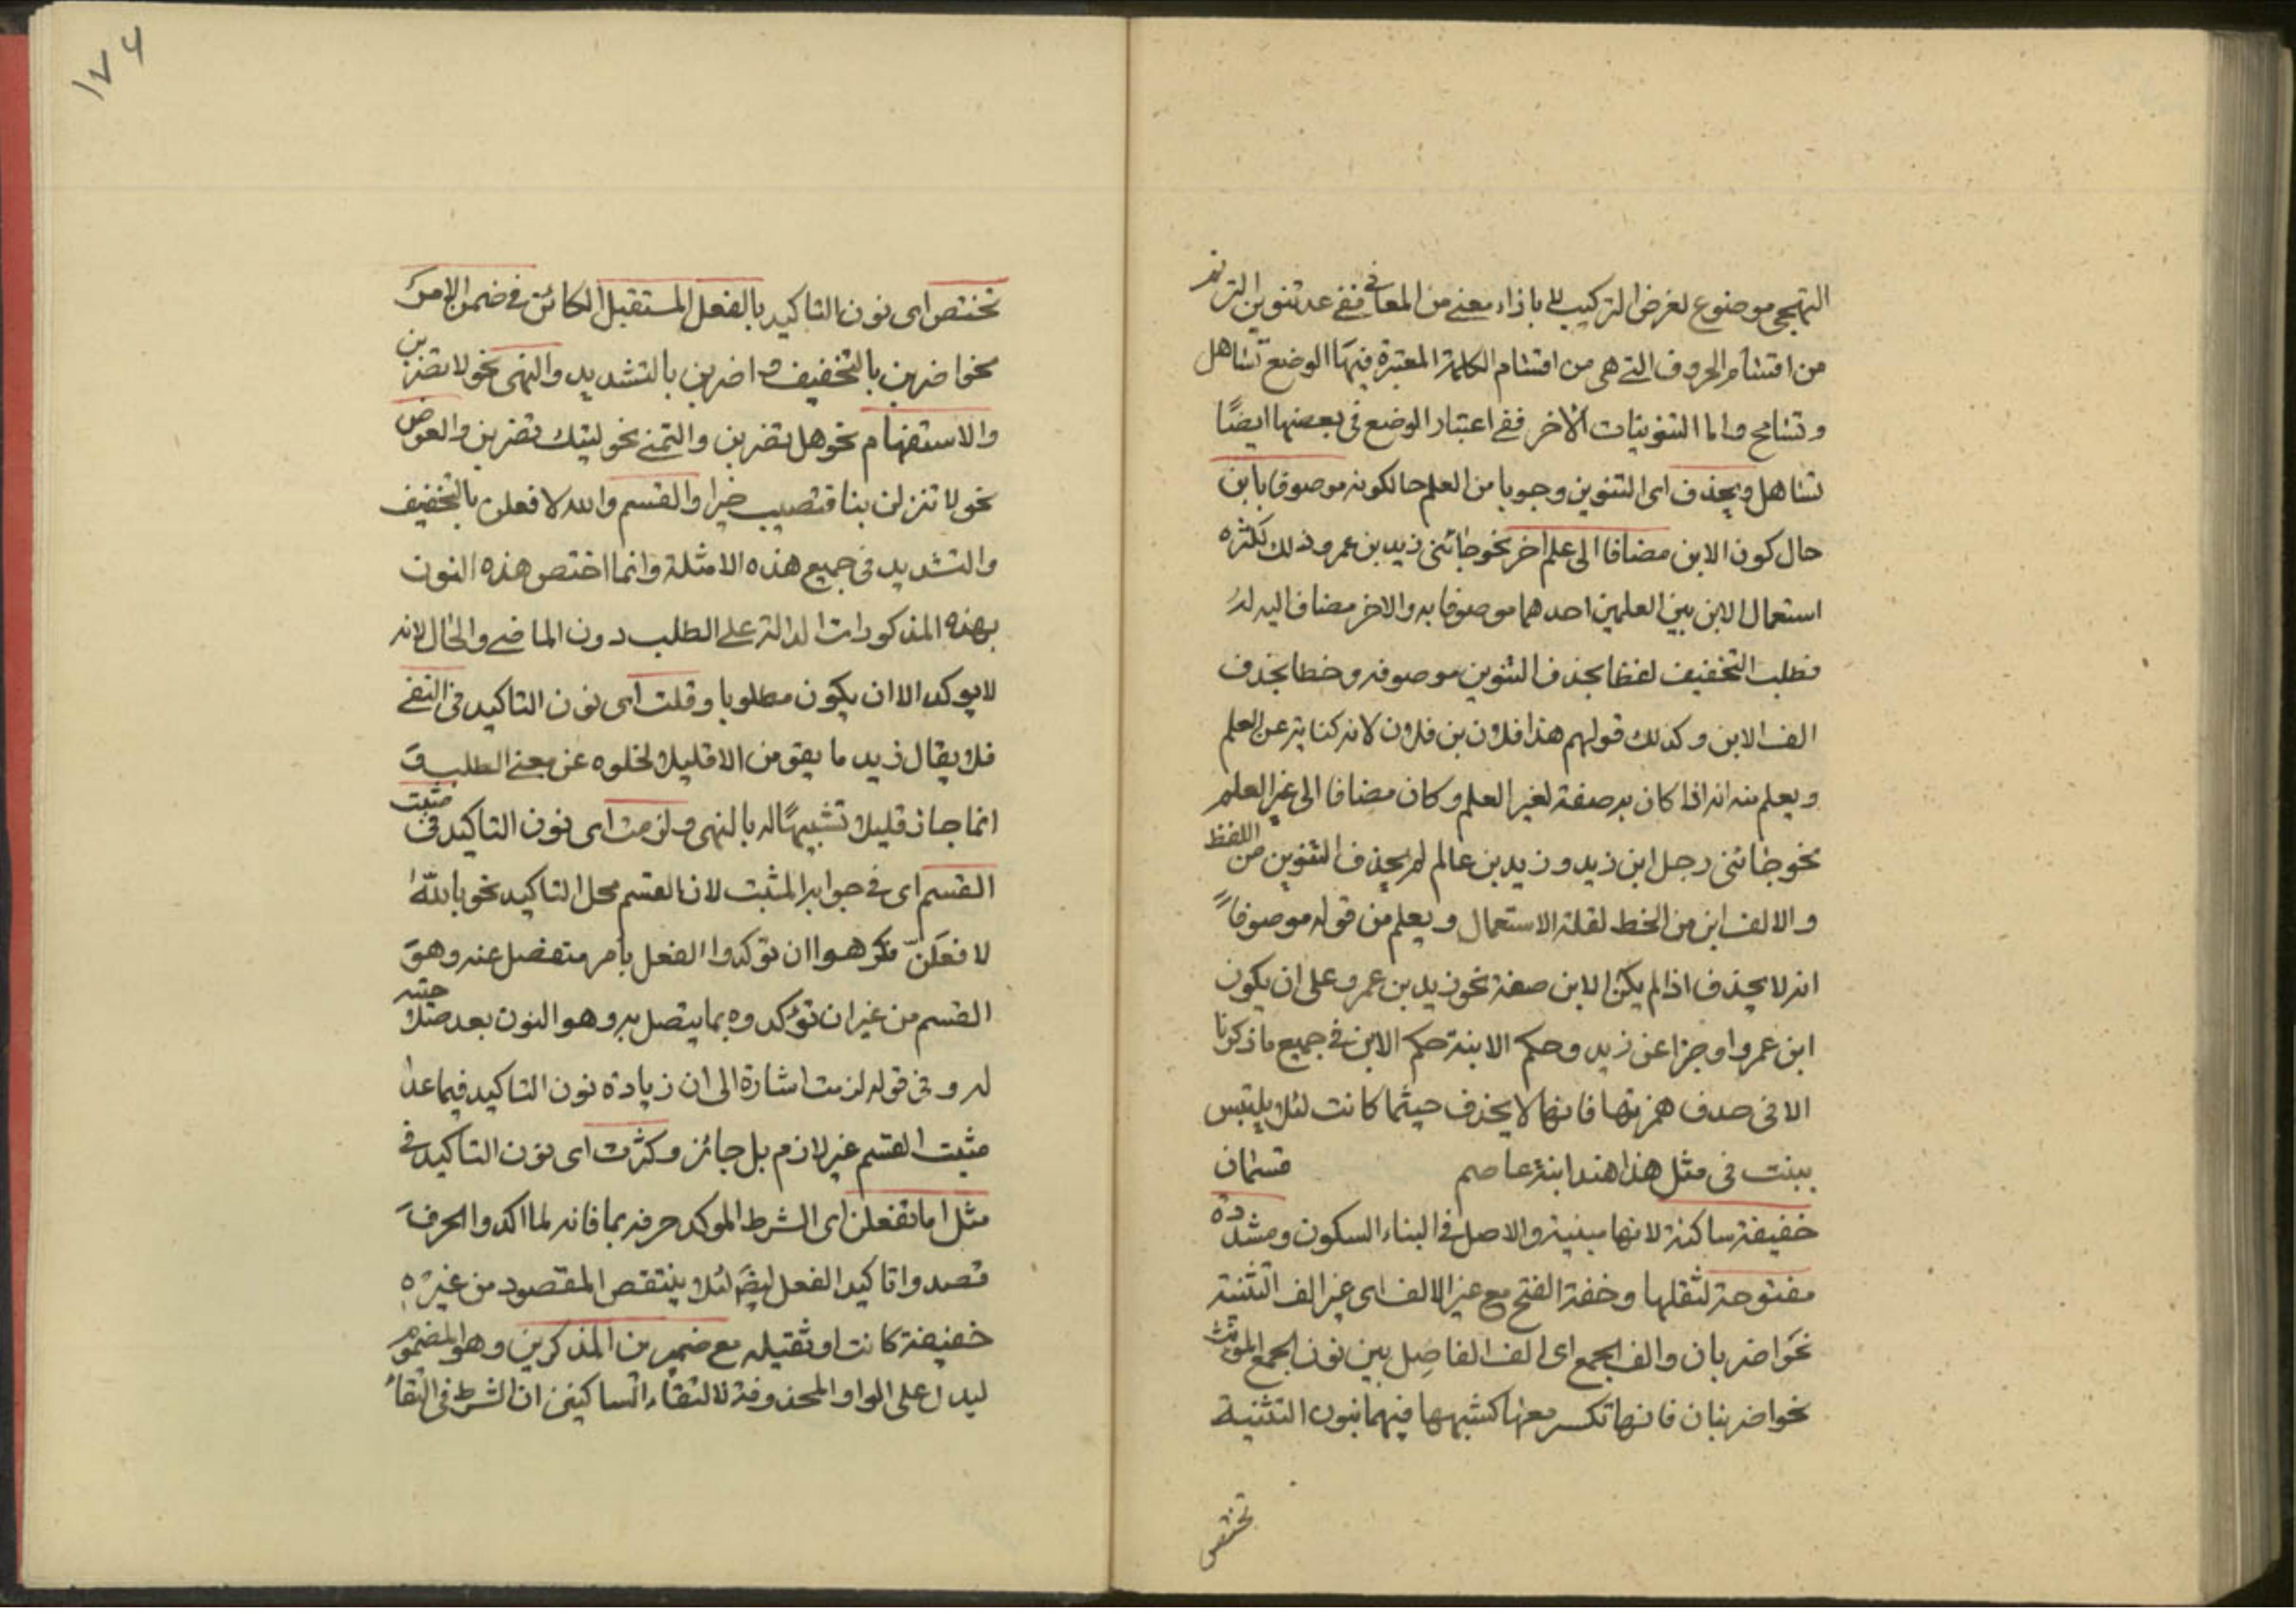 التهجى موضوع لغرض التركيب لا باذاء معنى من المعانى ففى عد تنوين الترنم
من اقسام الحروف التى هى من اقسام الكلمة المعتبرة فيها الوضع تساهل
وتسامح واما التنوينات الاخر ففى اعتبار الوضع فى بعضها ايضًا
تساهل ويحذف اى التنوين وجوبا من العلم حالكونه موصوفا بابن
حال كون الابن مضافا الى علم اخر نحو جائنى زيد بن عمرو ذلك لكثره
استعمال الابن بين العلمين احدهما موصوفا به والاخر مضاف اليه له
فطلب التخفيف لفظا بحذف التنوين موصوفه وخطا بحذف
الف الابن وكذلك قولهم هذا فلان بن فلان لانه كناية عن العلم
ويعلم منه انه اذا كان به صفة لغير العلم وكان مضافا الى غير العلم
نحو جائنى رجل ابن زيد وزيد بن عالم لم يحذف التنوين من اللفظ
والالف ابن من الخط لقلة الاستعمال ويعلم من قوله موصوفاً
انه لا يحذف اذا لم يكن الابن صفة نحو زيد بن عمرو على ان يكون
ابن عمرو او جزا عن زيد وحكم الابنة حكم الابن فى جميع ما ذكرنا
الا فى حدف همزتها فانها لا يحذف حيثما كانت لئلا يلتبس
ببنت فى مثل هذا هند ابنة عاصم قسمان
خفيفة ساكنة لانها مبنية والاصل فى البناء السكون ومشددة
مفتوحة لثقلها وخفة الفتح مع غير الالف اى غير الف التثنية
نحو اضربان والف الجمع اى الف الفاصل بين نون الجمع المؤنث
نحو اضربنان فانها تكسر معها كشبهها فيهما بنون التثنية
تختص
١٧٤
تختص اى نون التاكيد بالفعل المستقبل الكائن فى ضمن الامر
نحو اضربن بالتخفيف واضربن بالتشديد والنهى نحو لا تضربن
والاستفهام نحو هل تضربن والتمنى نحو ليتك تضربن والعرض
نحو لا تنزلن بنا فتصيب خيرا والقسم والله لافعلن بالتخفيف
والتشديد فى جميع هذه الامثلة وانما اختص هذه النون
بهذه المذكورات الدالة على الطلب دون الماضى والحال لانه
لا يوكد الا ان يكون مطلوبا وقلت اى نون التاكيد فى النفى
فلا يقال زيد ما يقومن الا قليلا لخلوه عن معنى الطلب و
انما جاز قليلا تشبيهًا له بالنهى ولزمت اى نون التاكيد فى مثبت
القسم اى فى جوابه المثبت لان القسم محل التاكيد نحو بالله
لافعلن فكرهوا ان توكدوا الفعل بامر منفصل عنه وهو
القسم من غير ان توكدوه بما يتصل به وهو النون بعد
له وفى قوله لزمت اشارة الى ان زيادة نون التاكيد فيما عدا
مثبت القسم غير لازم بل جائز وكثرت اى نون التاكيد فى
مثل اما تفعلن اى الشرط الموكد حرفه بما فانه لما اكدوا الحرف
قصدوا تاكيد الفعل ايضا لئلا ينتقص المقصود من غيره
خفيفة كانت او ثقيله مع ضمير من المذكرين وهو المضموم
ليدل على الواو المحذوفة لالتقاء الساكنين ان الشرط فى التقاء